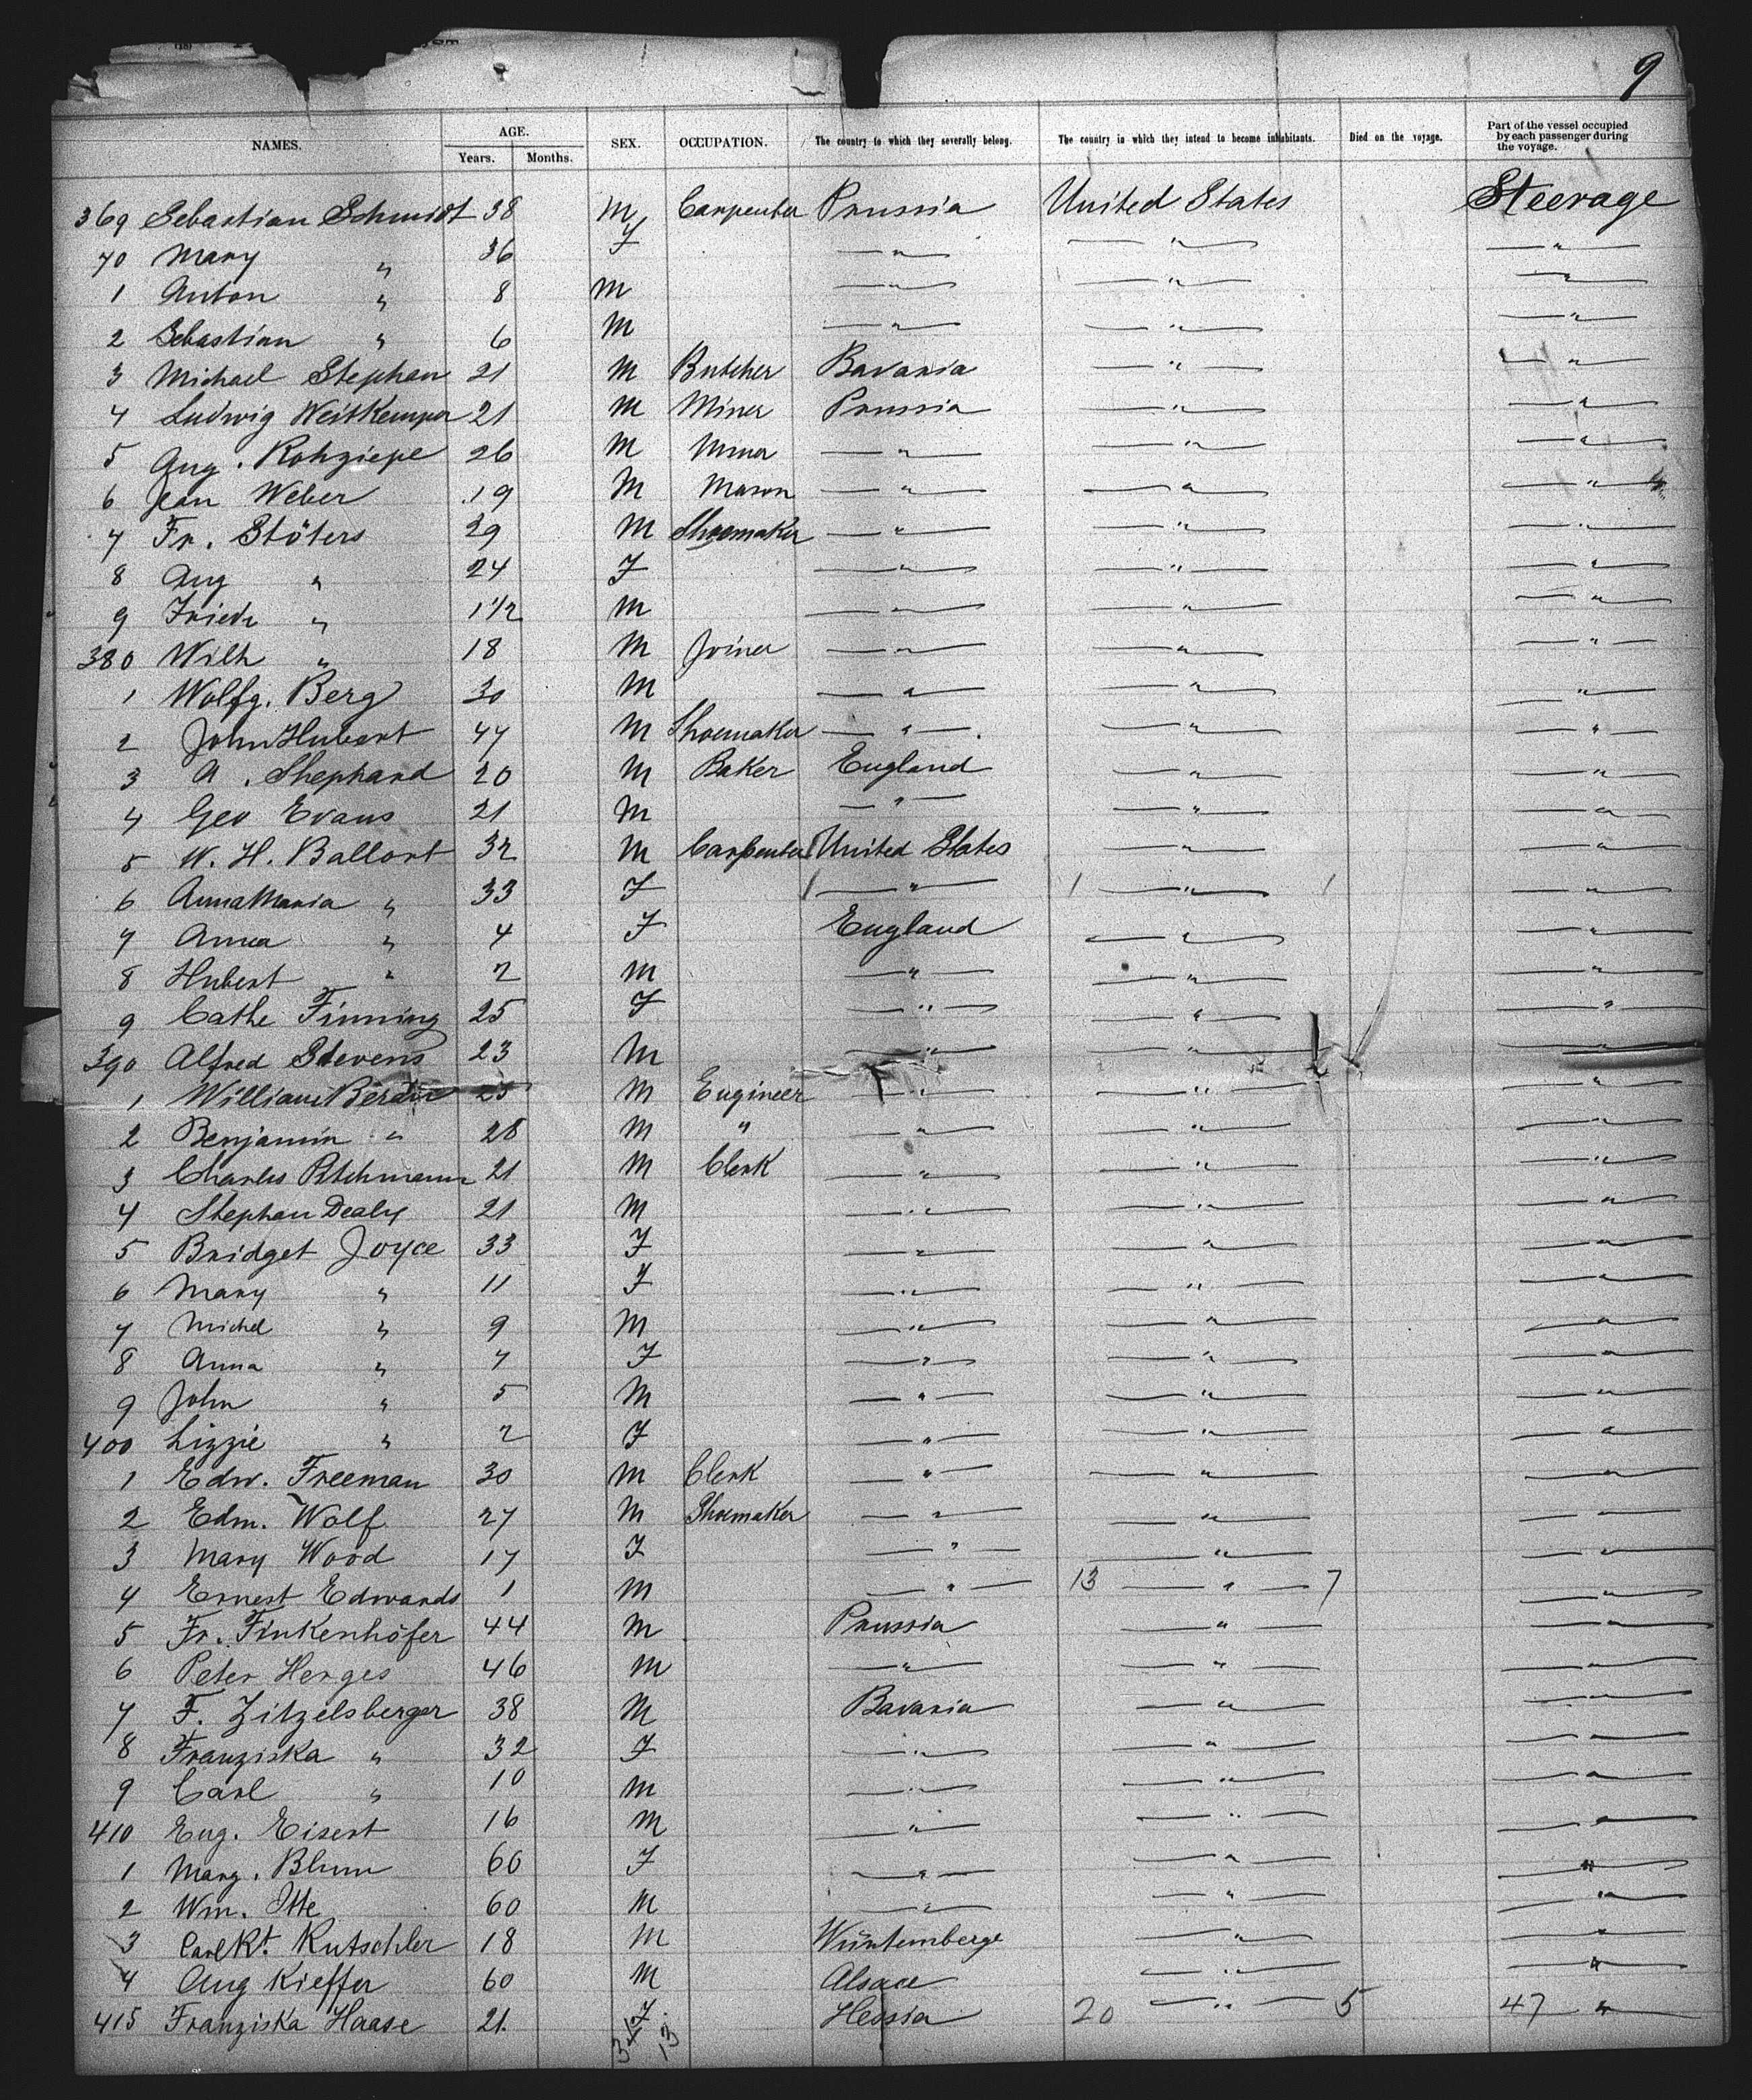 9
NAMES. AGE. Years. Months. SEX. OCCUPATION. The country to which they severally belong. The country in which they intend to become inhabitants. Died on the voyage. Part of the vessel occupied by each passenger during the voyage.
369 Sebastian Schmidt 38 M Carpenter Prussia United States Steerage
70 Mary " 36 F " " "
1 Anton " 8 M " " "
2 Sebastian " 6 M " " "
3 Michael Stephan 21 M Butcher Bavaria " "
4 Ludwig Weitkemper 21 M Miner Prussia " "
5 Aug. Rohziepe 26 M Miner " " "
6 Jean Weber 19 M Mason " " "
7 Fr. Stöters 29 M Shoemaker " " "
8 Aug " 24 F " " "
9 Friedr " 1 1/2 M " " "
380 Wilh " 18 M Joiner " " "
1 Wolfg. Berg 30 M " " "
2 John Hubert 47 M Shoemaker " " "
3 A. Shephard 20 M Baker England " "
4 Geo Evans 21 M " " "
5 W. H. Ballort 32 M Carpenter United States " "
6 Anna Maria " 33 F " 1 " 1 "
7 Anna " 4 F England " "
8 Hubert " 2 M " " "
9 Cathe Finning 25 F " " "
390 Alfred Stevens 23 M " " "
1 William 25 M Engineer " " "
2 Benjamin " 28 M " " " "
3 Charles 21 M Clerk " " "
4 Stephan Dealy 21 M " " "
5 Bridget Joyce 33 F " " "
6 Mary " 11 F " " "
7 Michel " 9 M " " "
8 Anna " 7 F " " "
9 John " 5 M " " "
400 Lizzie " 2 F " " "
1 Edw. Freeman 30 M Clerk " " "
2 Edm. Wolf 27 M Shoemaker " " "
3 Mary Wood 17 F " " "
4 Ernest Edwards 1 M " 13 " 7 "
5 Fr. Finkenhöfer 44 M Prussia " "
6 Peter Herges 46 M " " "
7 F. Zitzelsberger 38 M Bavaria " "
8 Franziska " 32 F " " "
9 Carl " 10 M " " "
410 Eug. Eisert 16 M " " "
1 Marg. Blum 60 F " " "
2 Wm. Itte 60 M " " "
3 Carl Rt. Kutschler 18 M Würtemberge " "
4 Aug Kieffer 60 M Alsace " "
415 Franziska Haase 21. F Hessia 20 " 5 47 "
34 13